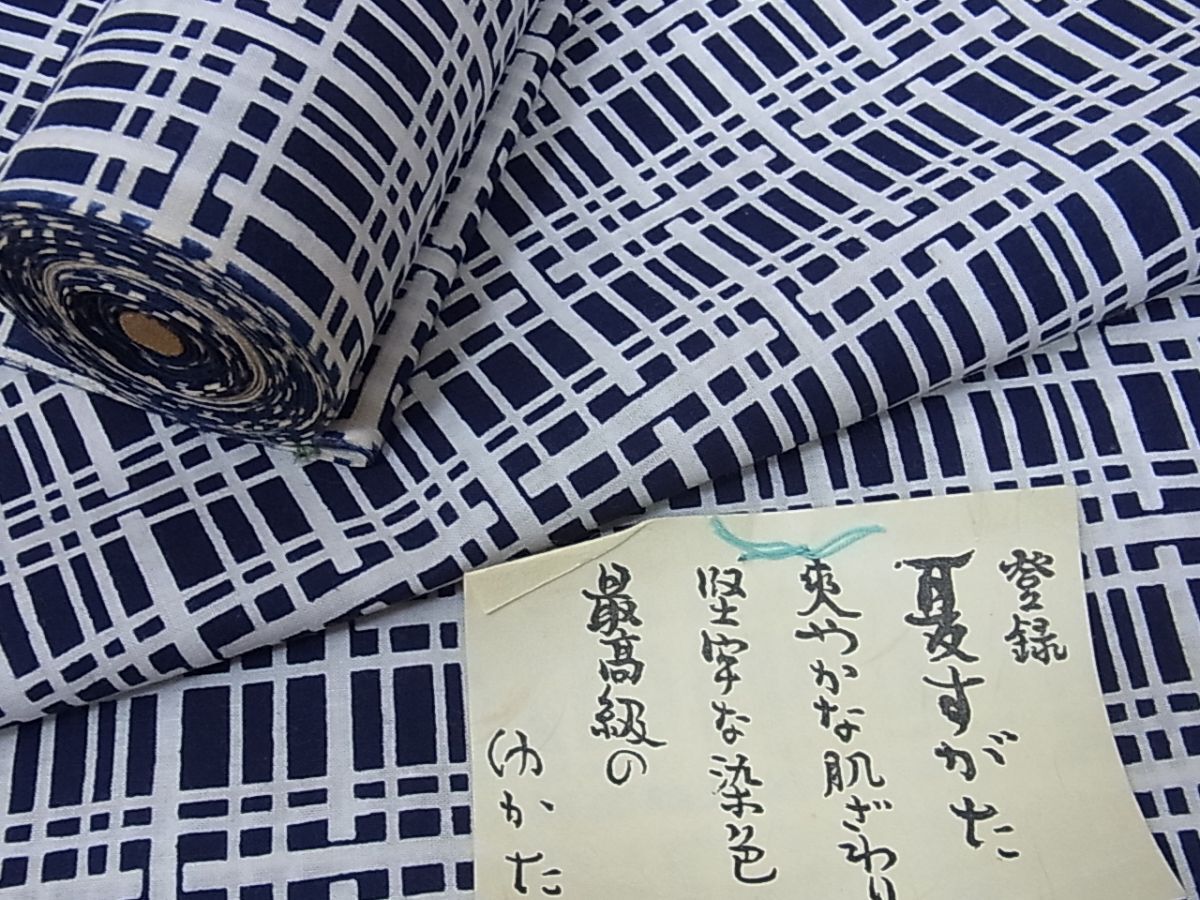 登録
夏すがた
爽やかな肌ざわり
堅牢な染色
最高級の
ゆかた